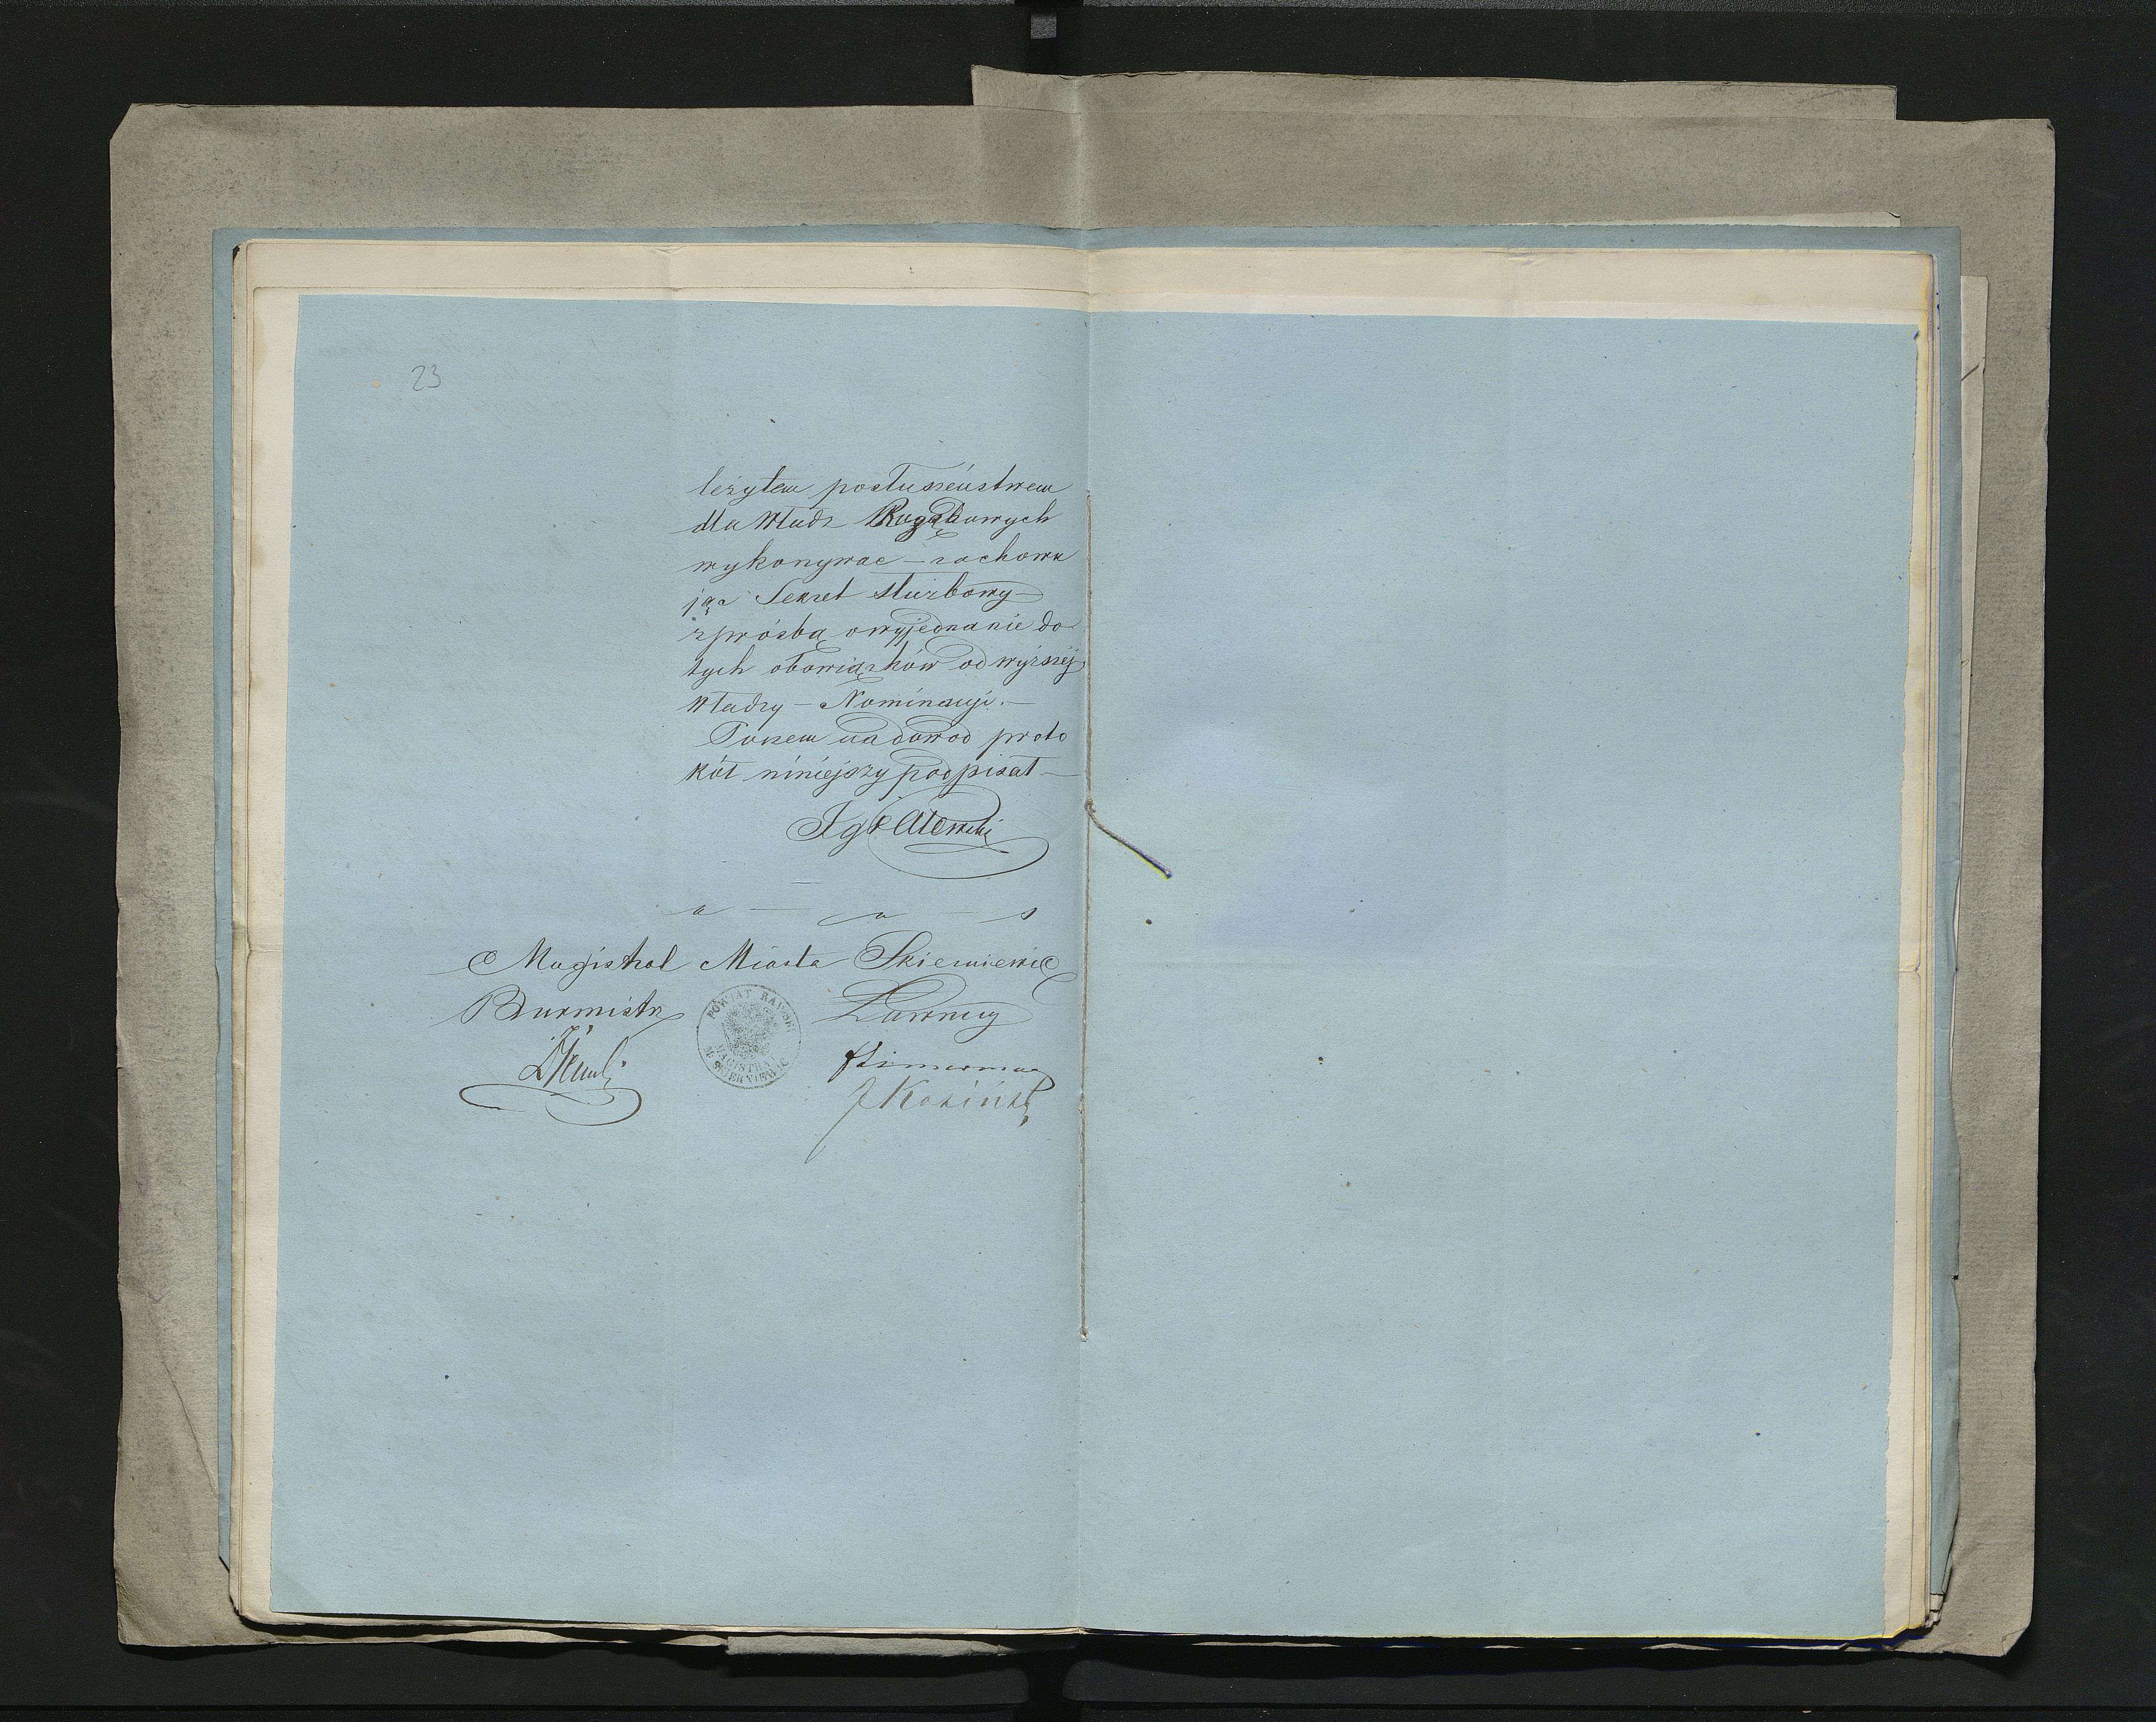 23
leżytem posłuszeństwem
dla Władz Rządowych
wykonywac – zachowu
jąc Sekret służbowy –
z prośbą o wyjednanie do
tych obowiązków od wyższéj
Władzy – Nominacyi. –
Poczem na dowod proto
kół niniejszy podpisał –
a – a – s
Magistrat Miasta Skierniewic
Burmistrz Ławnicy
POWIAT RAWSKI
MAGISTRAT
M. SKIERNIEWIC
Zimerman
J Koziński